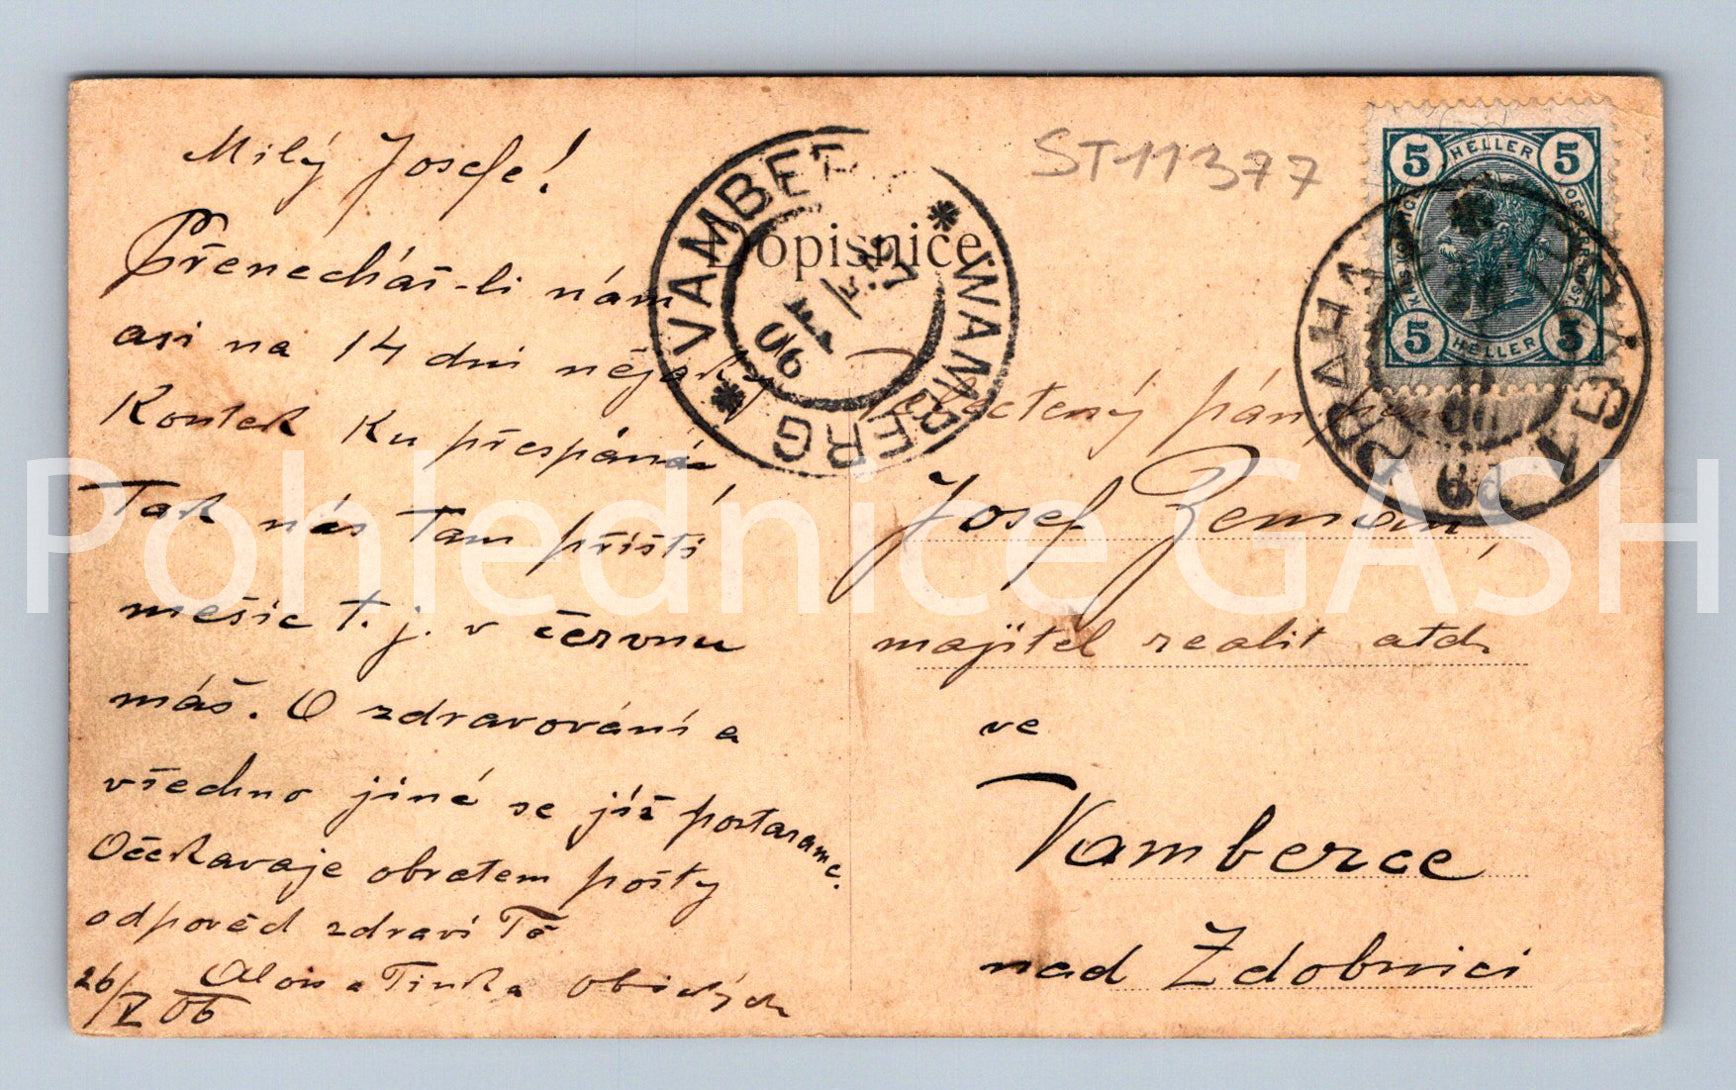 Milý Josefe!
Přenecháš-li nám
asi na 14 dni nějaký
Koutek Ku přespání
Tak nás Tam přišti
mešic t. j. v červnu
máš. O zdravování a
všechno jiné se již postarame.
Očekavaje obratem pošty
odpověd zdraví Tě
Alois a Tinka
26/V 06
ST11377
Dopisnice
VAMBE
WAMBERG
26 / 5 06
5 HELLER 5
5 HELLER 5
PRAHA
Velectený pán, pan
Josef Zeman,
majitel realit atd.
ve
Vamberce
nad Zdobnici
Pohlednice GASH